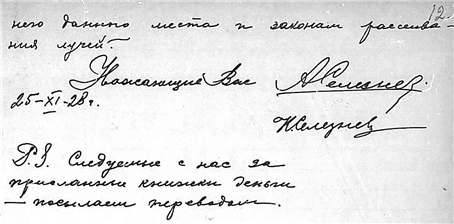 12.
него данного места и законам рассеива-
ния лучей.
Уважающие Вас АСелезнев
25-XI-28г.
КСелезнев
P.S. Следуемые с нас за
присланные книжки деньги
— посылаем переводом.